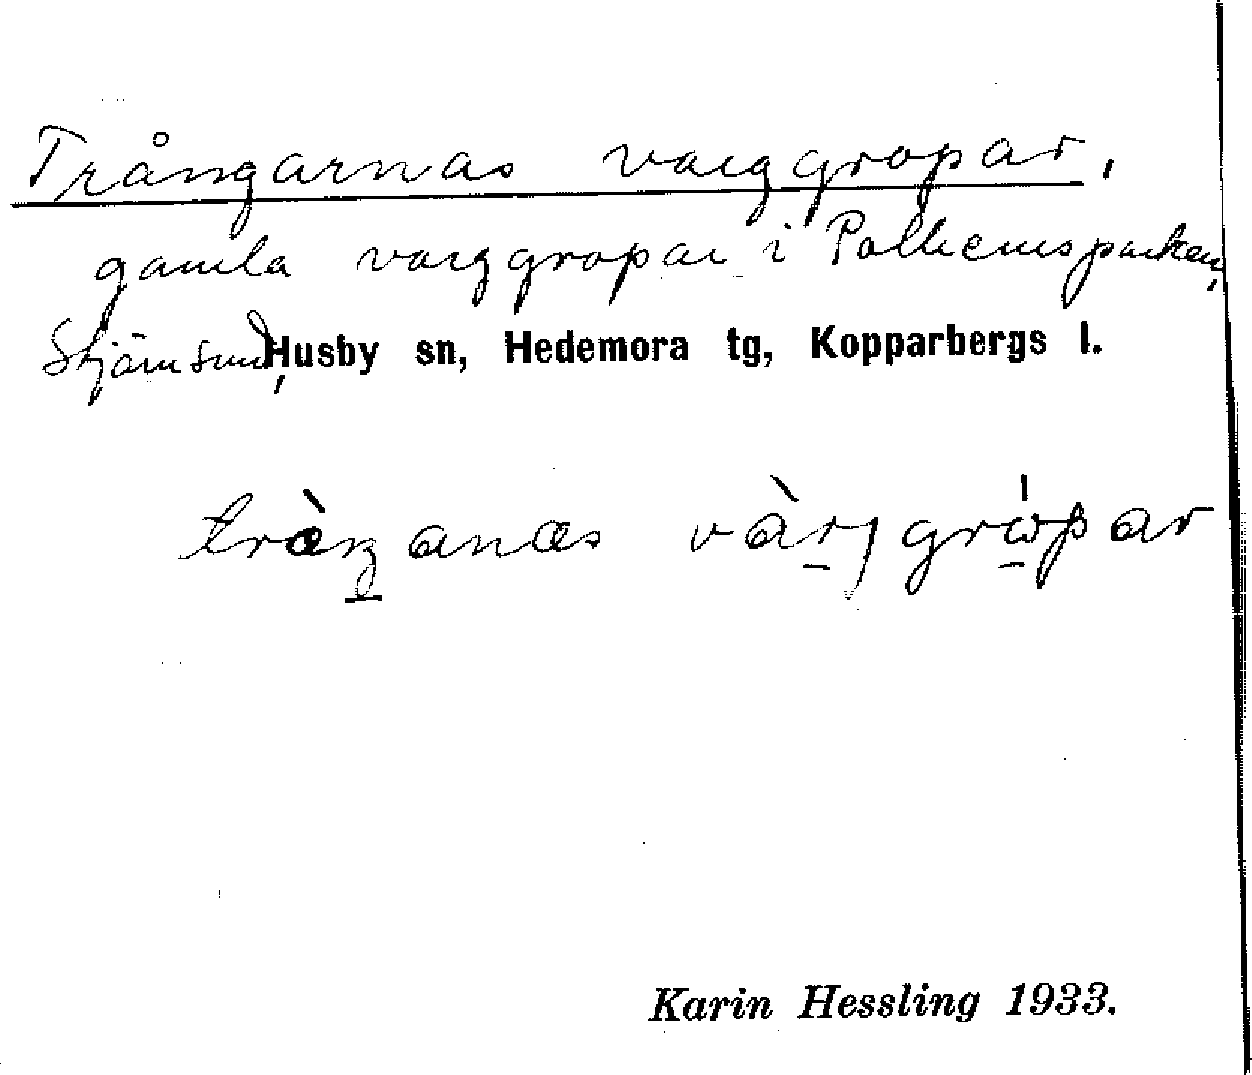 Trångarnas varggropar,
gamla varggropar i Polhemsparken,
Stjärnsund, Husby sn, Hedemora tg, Kopparbergs l.
Karin Hessling 1933.